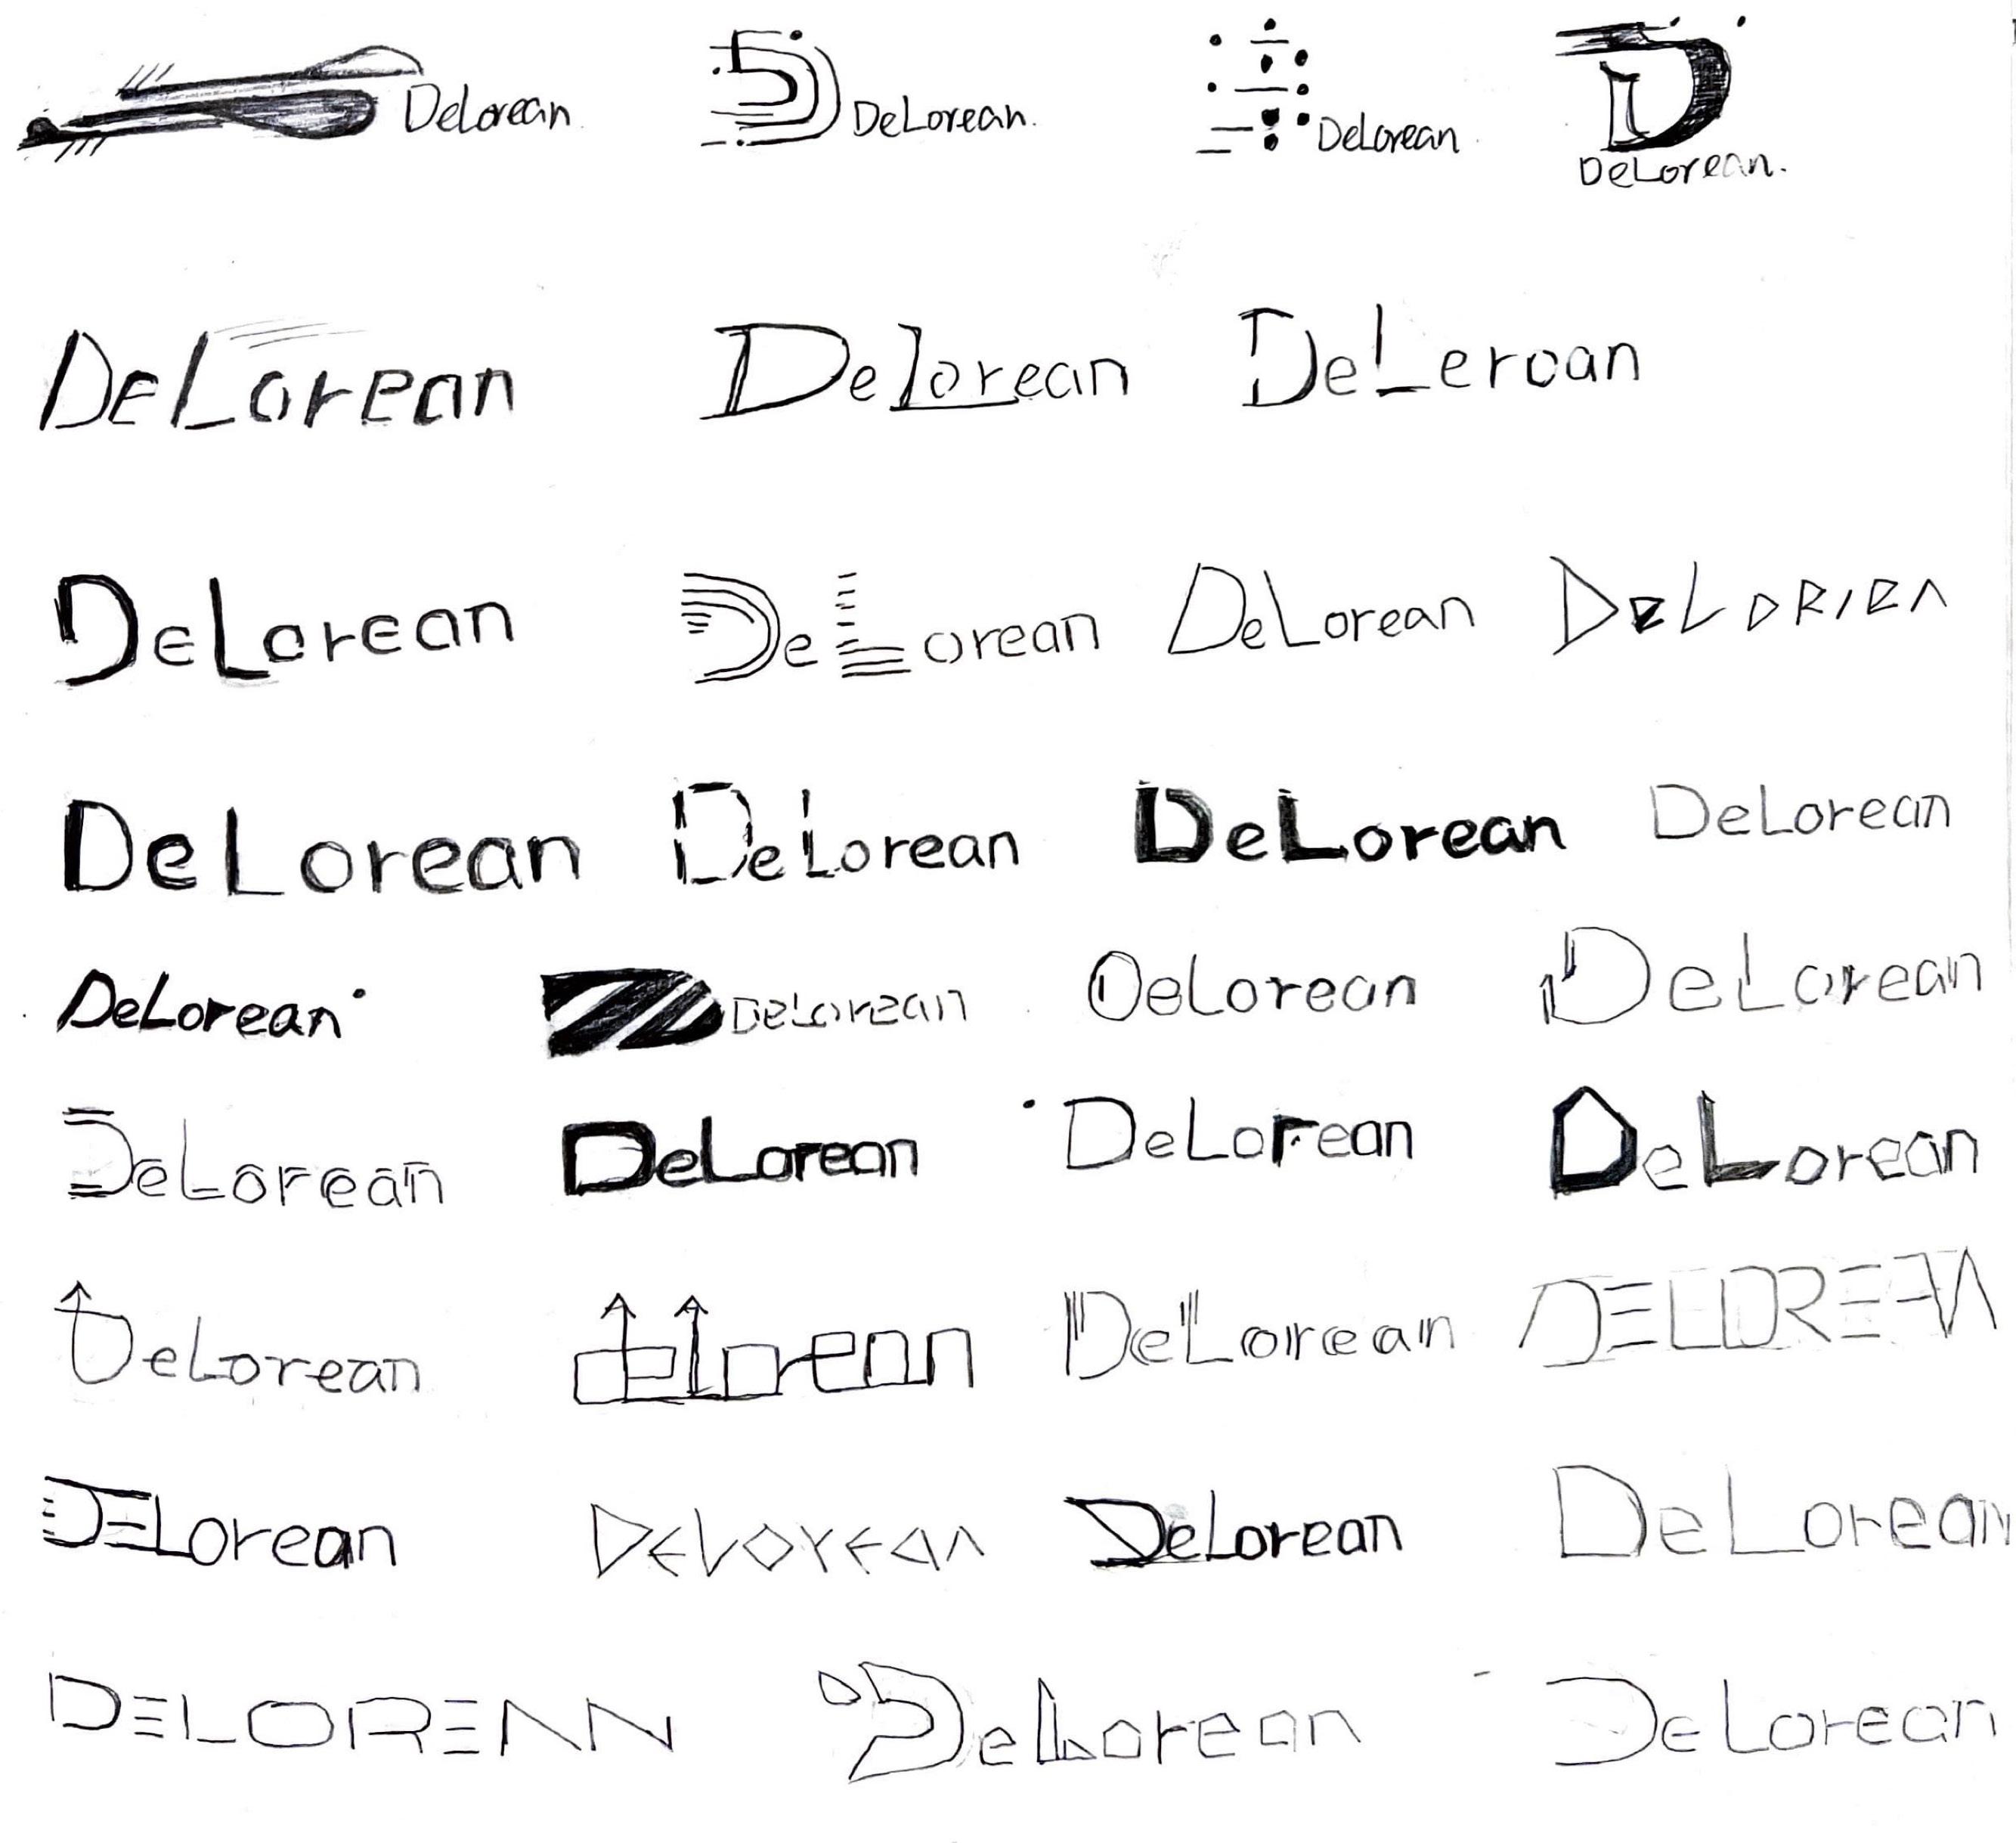 DeLorean DeLorean. DeLorean DeLorean.
DeLorean DeLorean DeLeroan
DeLorean DeLorean DeLorean DeLORIEA
DeLorean DeLorean DeLorean DeLorean
DeLorean DeLorean DeLorean DeLorean
DeLorean DeLorean DeLorean DeLorean
DeLorean delorean DeLorean DELOREAN
DELorean DeLorean DeLorean DeLorean
DELOREAN DeLorean DeLorean